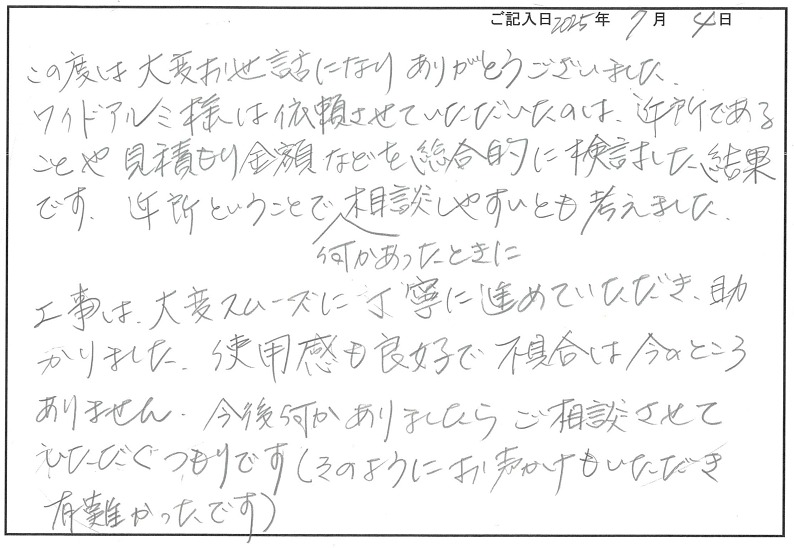 ご記入日 2025年 7月 4日
この度は大変お世話になりありがとうございました。
ワイドアルミ様は依頼させていただいたのは、近所である
ことや見積もり金額などを総合的に検討した結果
です。近所ということで相談しやすいとも考えました。
何かあったときに
工事は、大変スムーズに丁寧に進めていただき、助
かりました。使用感も良好で不具合は今のところ
ありません。今後何かありましたらご相談させて
いただくつもりです(そのようにお声かけもいただき
有難かったです)